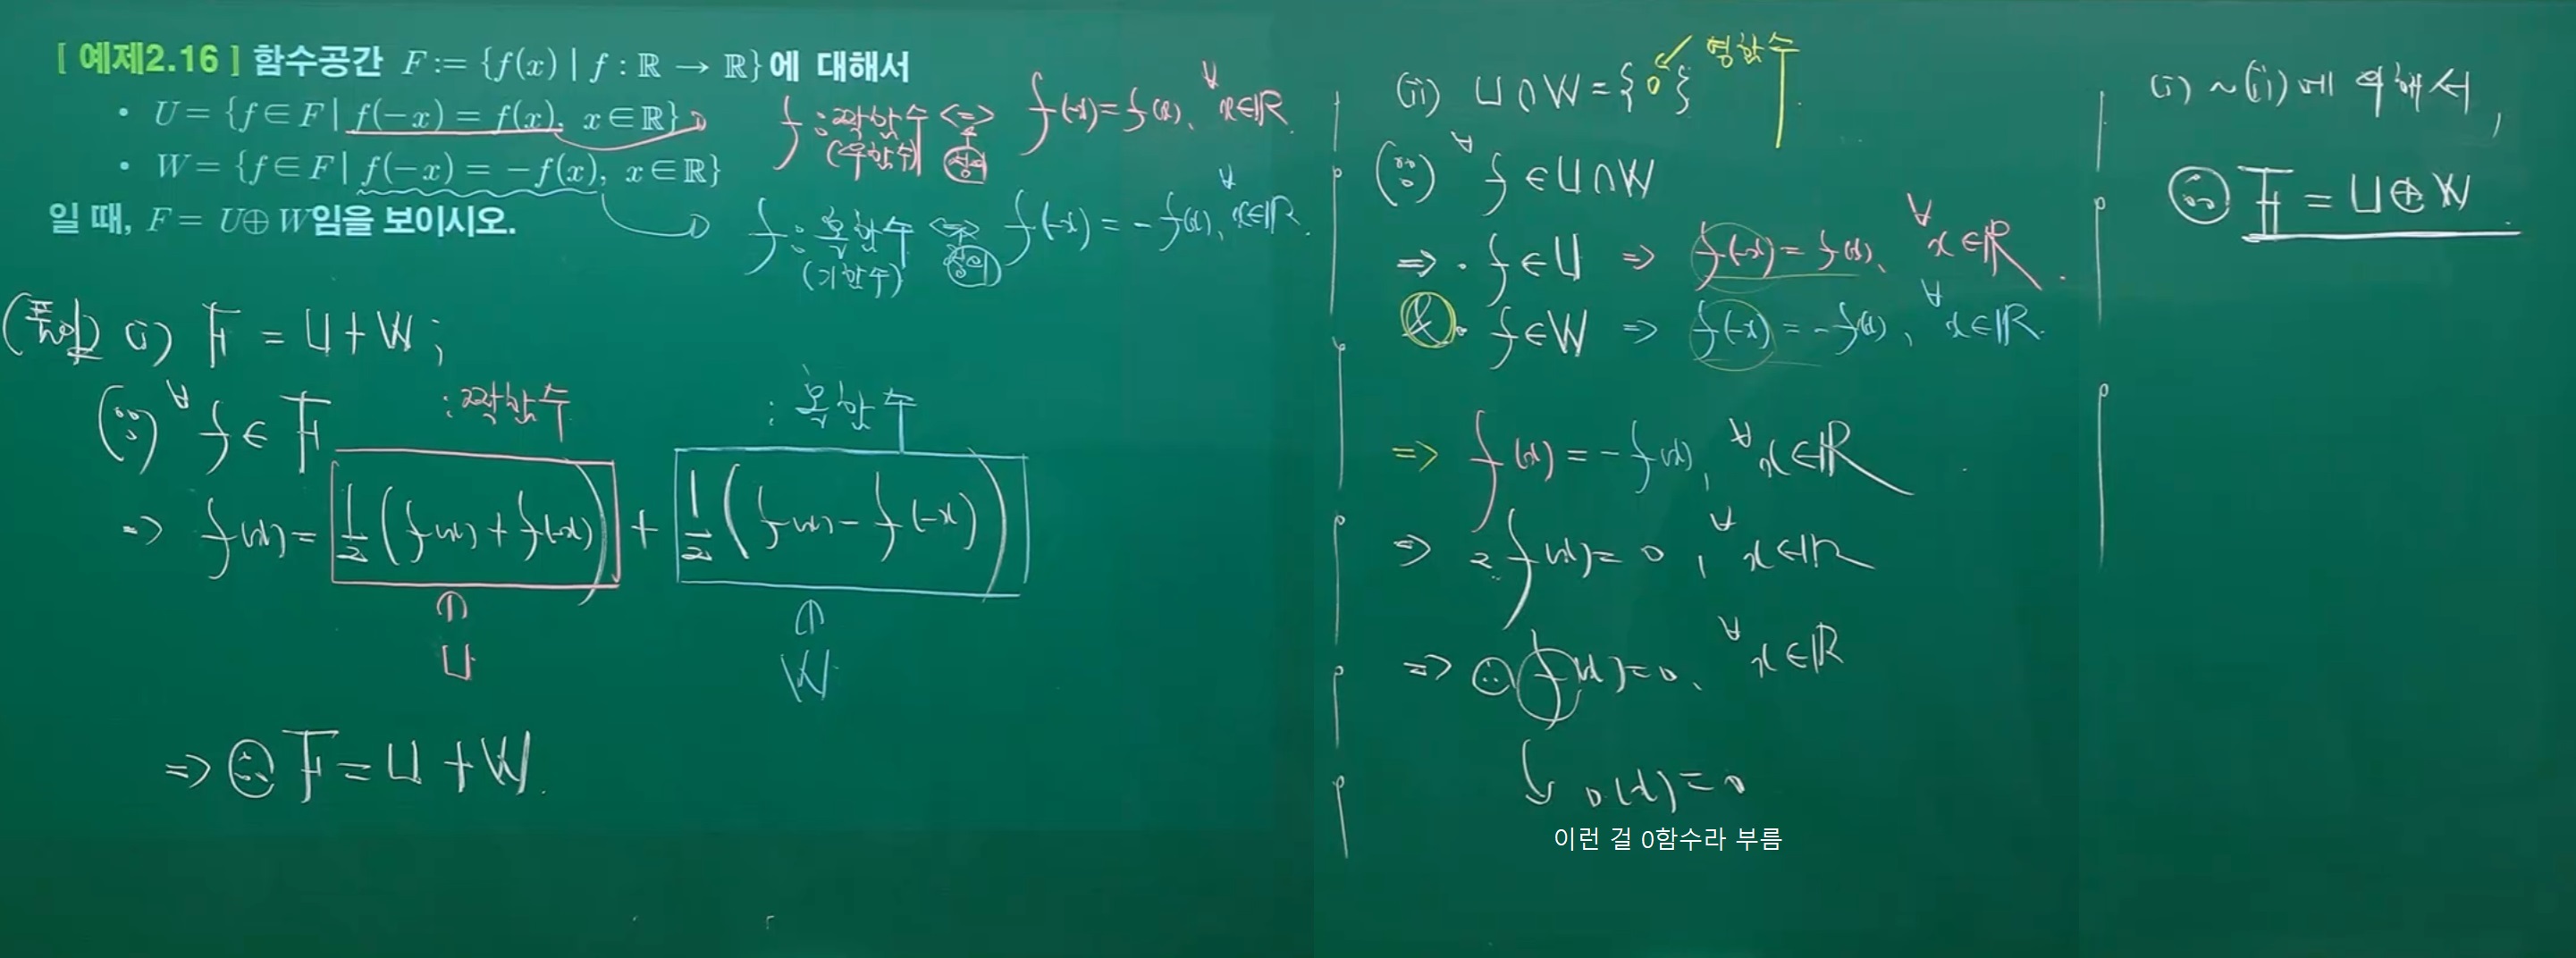 [ 예제2.16 ] 함수공간 F := {f(x) | f : ℝ → ℝ}에 대해서
• U = {f ∈ F | f(-x) = f(x), x ∈ ℝ}
• W = {f ∈ F | f(-x) = -f(x), x ∈ ℝ}
일 때, F = U⊕W임을 보이시오.
f : 짝함수 <=> f(-x) = f(x), ∀x∈ℝ.
(우함수) 정의
f : 홀함수 <=> f(-x) = -f(x), ∀x∈ℝ.
(기함수) 정의
(풀이) (i) F = U + W ;
(∵) ∀f ∈ F
: 짝함수 : 홀함수
=> f(x) = 1/2 (f(x) + f(-x)) + 1/2 (f(x) - f(-x))
⇑ ⇑
U W
=> ∴ F = U + W.
(ii) U ∩ W = { 0 } 영함수
(∵) ∀f ∈ U ∩ W
=> · f ∈ U => f(-x) = f(x), ∀x∈ℝ.
& · f ∈ W => f(-x) = -f(x), ∀x∈ℝ.
=> f(x) = -f(x), ∀x∈ℝ
=> 2f(x) = 0, ∀x∈ℝ
=> ∴ f(x) = 0, ∀x∈ℝ
0(x) = 0
이런 걸 0함수라 부름
(i) ~ (ii)에 의해서,
∴ F = U ⊕ W.